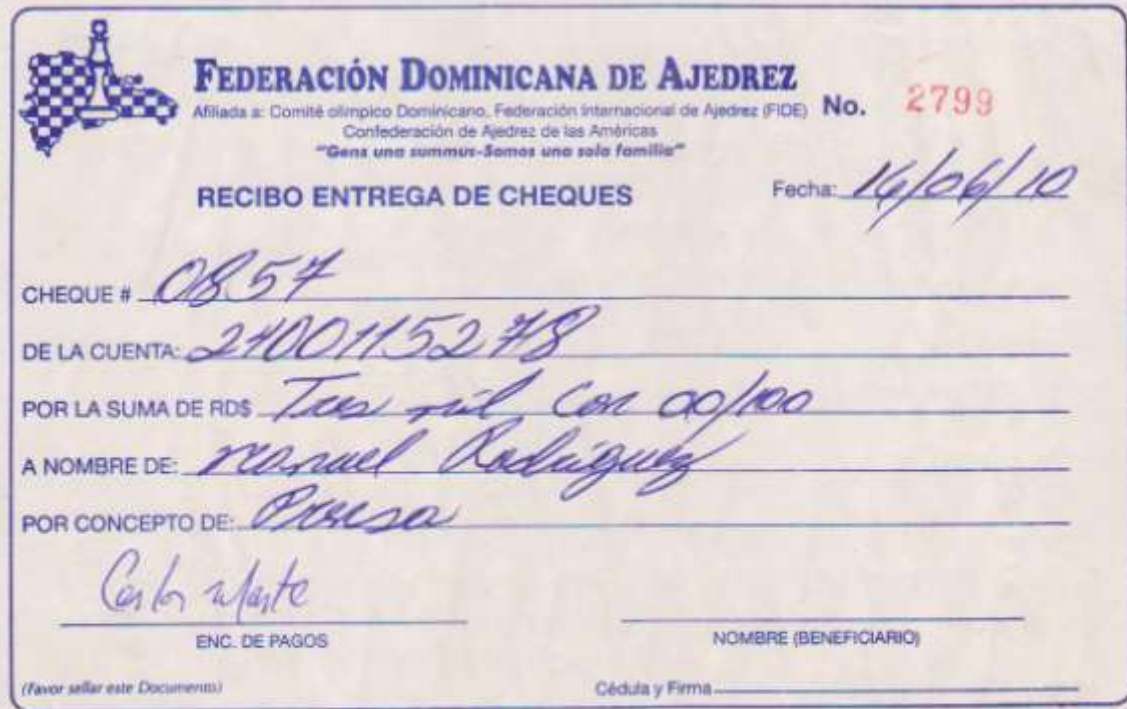 FEDERACIÓN DOMINICANA DE AJEDREZ
Afiliada a: Comité olímpico Dominicano, Federación Internacional de Ajedrez (FIDE) No. 2799
Confederación de Ajedrez de las Américas
"Gens una summus-Somos una sola familia"
RECIBO ENTREGA DE CHEQUES
Fecha: 16/06/10
CHEQUE # 0857
DE LA CUENTA: 2400115278
POR LA SUMA DE RD$ Tres mil, Con 00/100
A NOMBRE DE: Manuel Rodríguez
POR CONCEPTO DE: Prensa
Carlos Marte
ENC. DE PAGOS
NOMBRE (BENEFICIARIO)
(Favor sellar este Documento)
Cédula y Firma